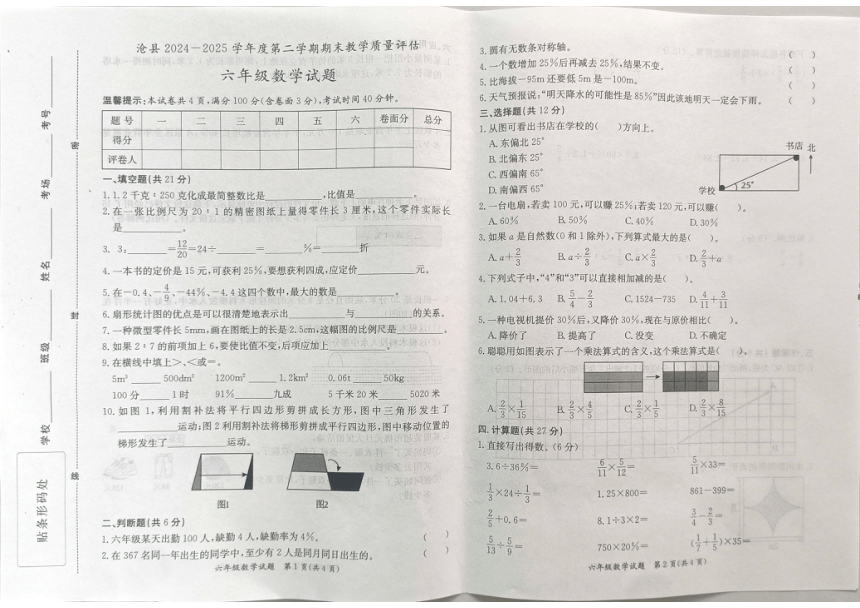 沧县 2024－2025 学年度第二学期期末教学质量评估
六年级数学试题
温馨提示:本试卷共 4 页,满分 100 分(含卷面 3 分),考试时间 40 分钟。
题号 一 二 三 四 五 六 卷面分 总分
得分
评卷人
一、填空题(共 21 分)
1. 1.2 千克：250 克化成最简整数比是________,比值是________。
2. 在一张比例尺为 20：1 的精密图纸上量得零件长 3 厘米,这个零件实际长
是________。
3. 3：________=12/20=24÷________=________%=________折
4. 一本书的定价是 15 元,可获利 25%,要想获利四成,应定价________元。
5. 在-0.4、-4/9、-44%、-4.4 这四个数中,最大的数是________。
6. 扇形统计图的优点是可以很清楚地表示出________与________的关系。
7. 一种微型零件长 5mm,画在图纸上的长是 2.5cm,这幅图的比例尺是________。
8. 如果 2：7 的前项加上 6,要使比值不变,后项应加上________。
9. 在横线中填上>、<或=。
5m³____500dm³ 1200m²____1.2km² 0.06t____50kg
100 分____1 时 91%____九成 5 千米 20 米____5020 米
10. 如图 1,利用割补法将平行四边形剪拼成长方形,图中三角形发生了
________运动;图 2 利用割补法将梯形剪拼成平行四边形,图中移动位置的
梯形发生了________运动。
图1 图2
二、判断题(共 6 分)
1. 六年级某天出勤 100 人,缺勤 4 人,缺勤率为 4%。 ( )
2. 在 367 名同一年出生的同学中,至少有 2 人是同月同日出生的。 ( )
六年级数学试题 第 1 页(共 4 页)
学校 班级 姓名 考场 考号
密 封 线
贴条形码处
3. 圆有无数条对称轴。 ( )
4. 一个数增加 25%后再减去 25%,结果不变。 ( )
5. 比海拔－95m 还要低 5m 是－100m。 ( )
6. 天气预报说:“明天降水的可能性是 85%”因此该地明天一定会下雨。 ( )
三、选择题(共 12 分)
1. 从图可看出书店在学校的( )方向上。
A. 东偏北 25°
B. 北偏东 25°
C. 西偏南 65°
D. 南偏西 65°
书店 北
学校 25°
2. 一台电扇,若卖 100 元,可以赚 25%;若卖 120 元,可以赚( )。
A. 60% B. 50% C. 40% D. 30%
3. 如果 a 是自然数(0 和 1 除外),下列算式最大的是( )。
A. a+2/3 B. a÷2/3 C. a×2/3 D. 2/3÷a
4. 下列式子中,“4”和“3”可以直接相加减的是( )。
A. 1.04+6.3 B. 5/4-2/3 C. 1524-735 D. 4/11+3/11
5. 一种电视机提价 30%后,又降价 30%,现在与原价相比( )。
A. 降价了 B. 提高了 C. 没变 D. 不确定
6. 聪聪用如图表示了一个乘法算式的含义,这个乘法算式是( )。
A. 2/3×1/15 B. 2/3×4/5 C. 2/3×1/5 D. 2/3×8/15
四、计算题(共 27 分)
1. 直接写出得数。(6 分)
3.6÷36%= 6/11×5/12= 5/11×33=
1/3×24÷1/3= 1.25×800= 861-399=
2/5+0.6= 8.1÷3×2= 3/4-2/3=
5/13÷5/9= 750×20%= (1/7+1/5)×35=
六年级数学试题 第 2 页(共 4 页)